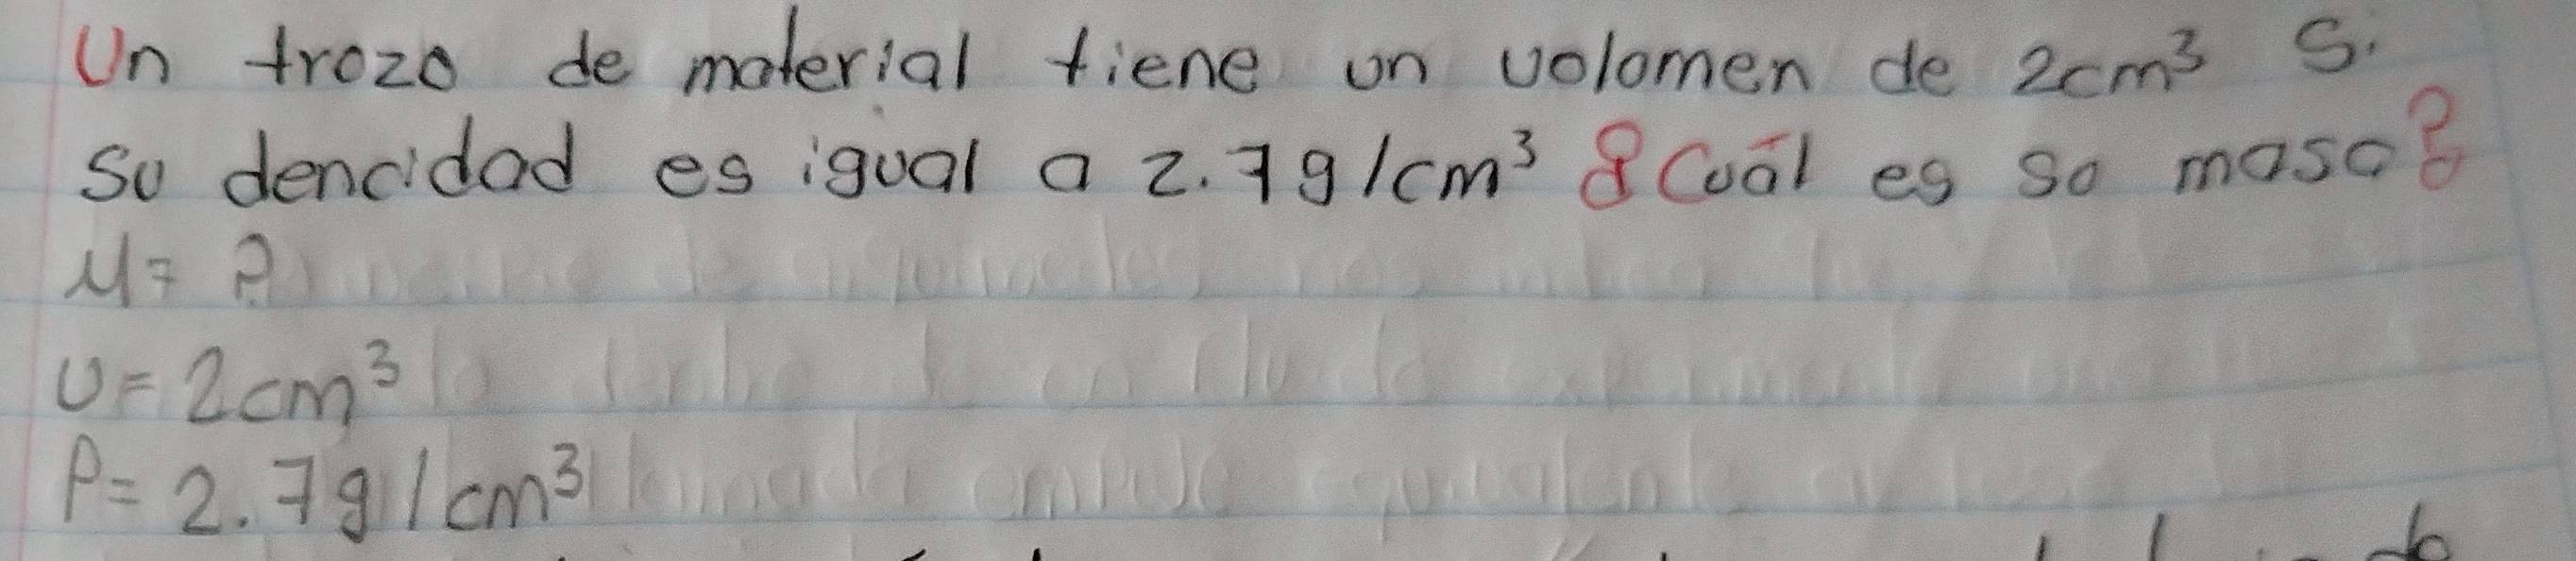 Un trozo de material tiene un volomen de 2cm³ Si
su dencidad es igual a 2.7g/cm³ ¿Cuál es so masa?
M= ?
U= 2cm³
P= 2.7g/cm³